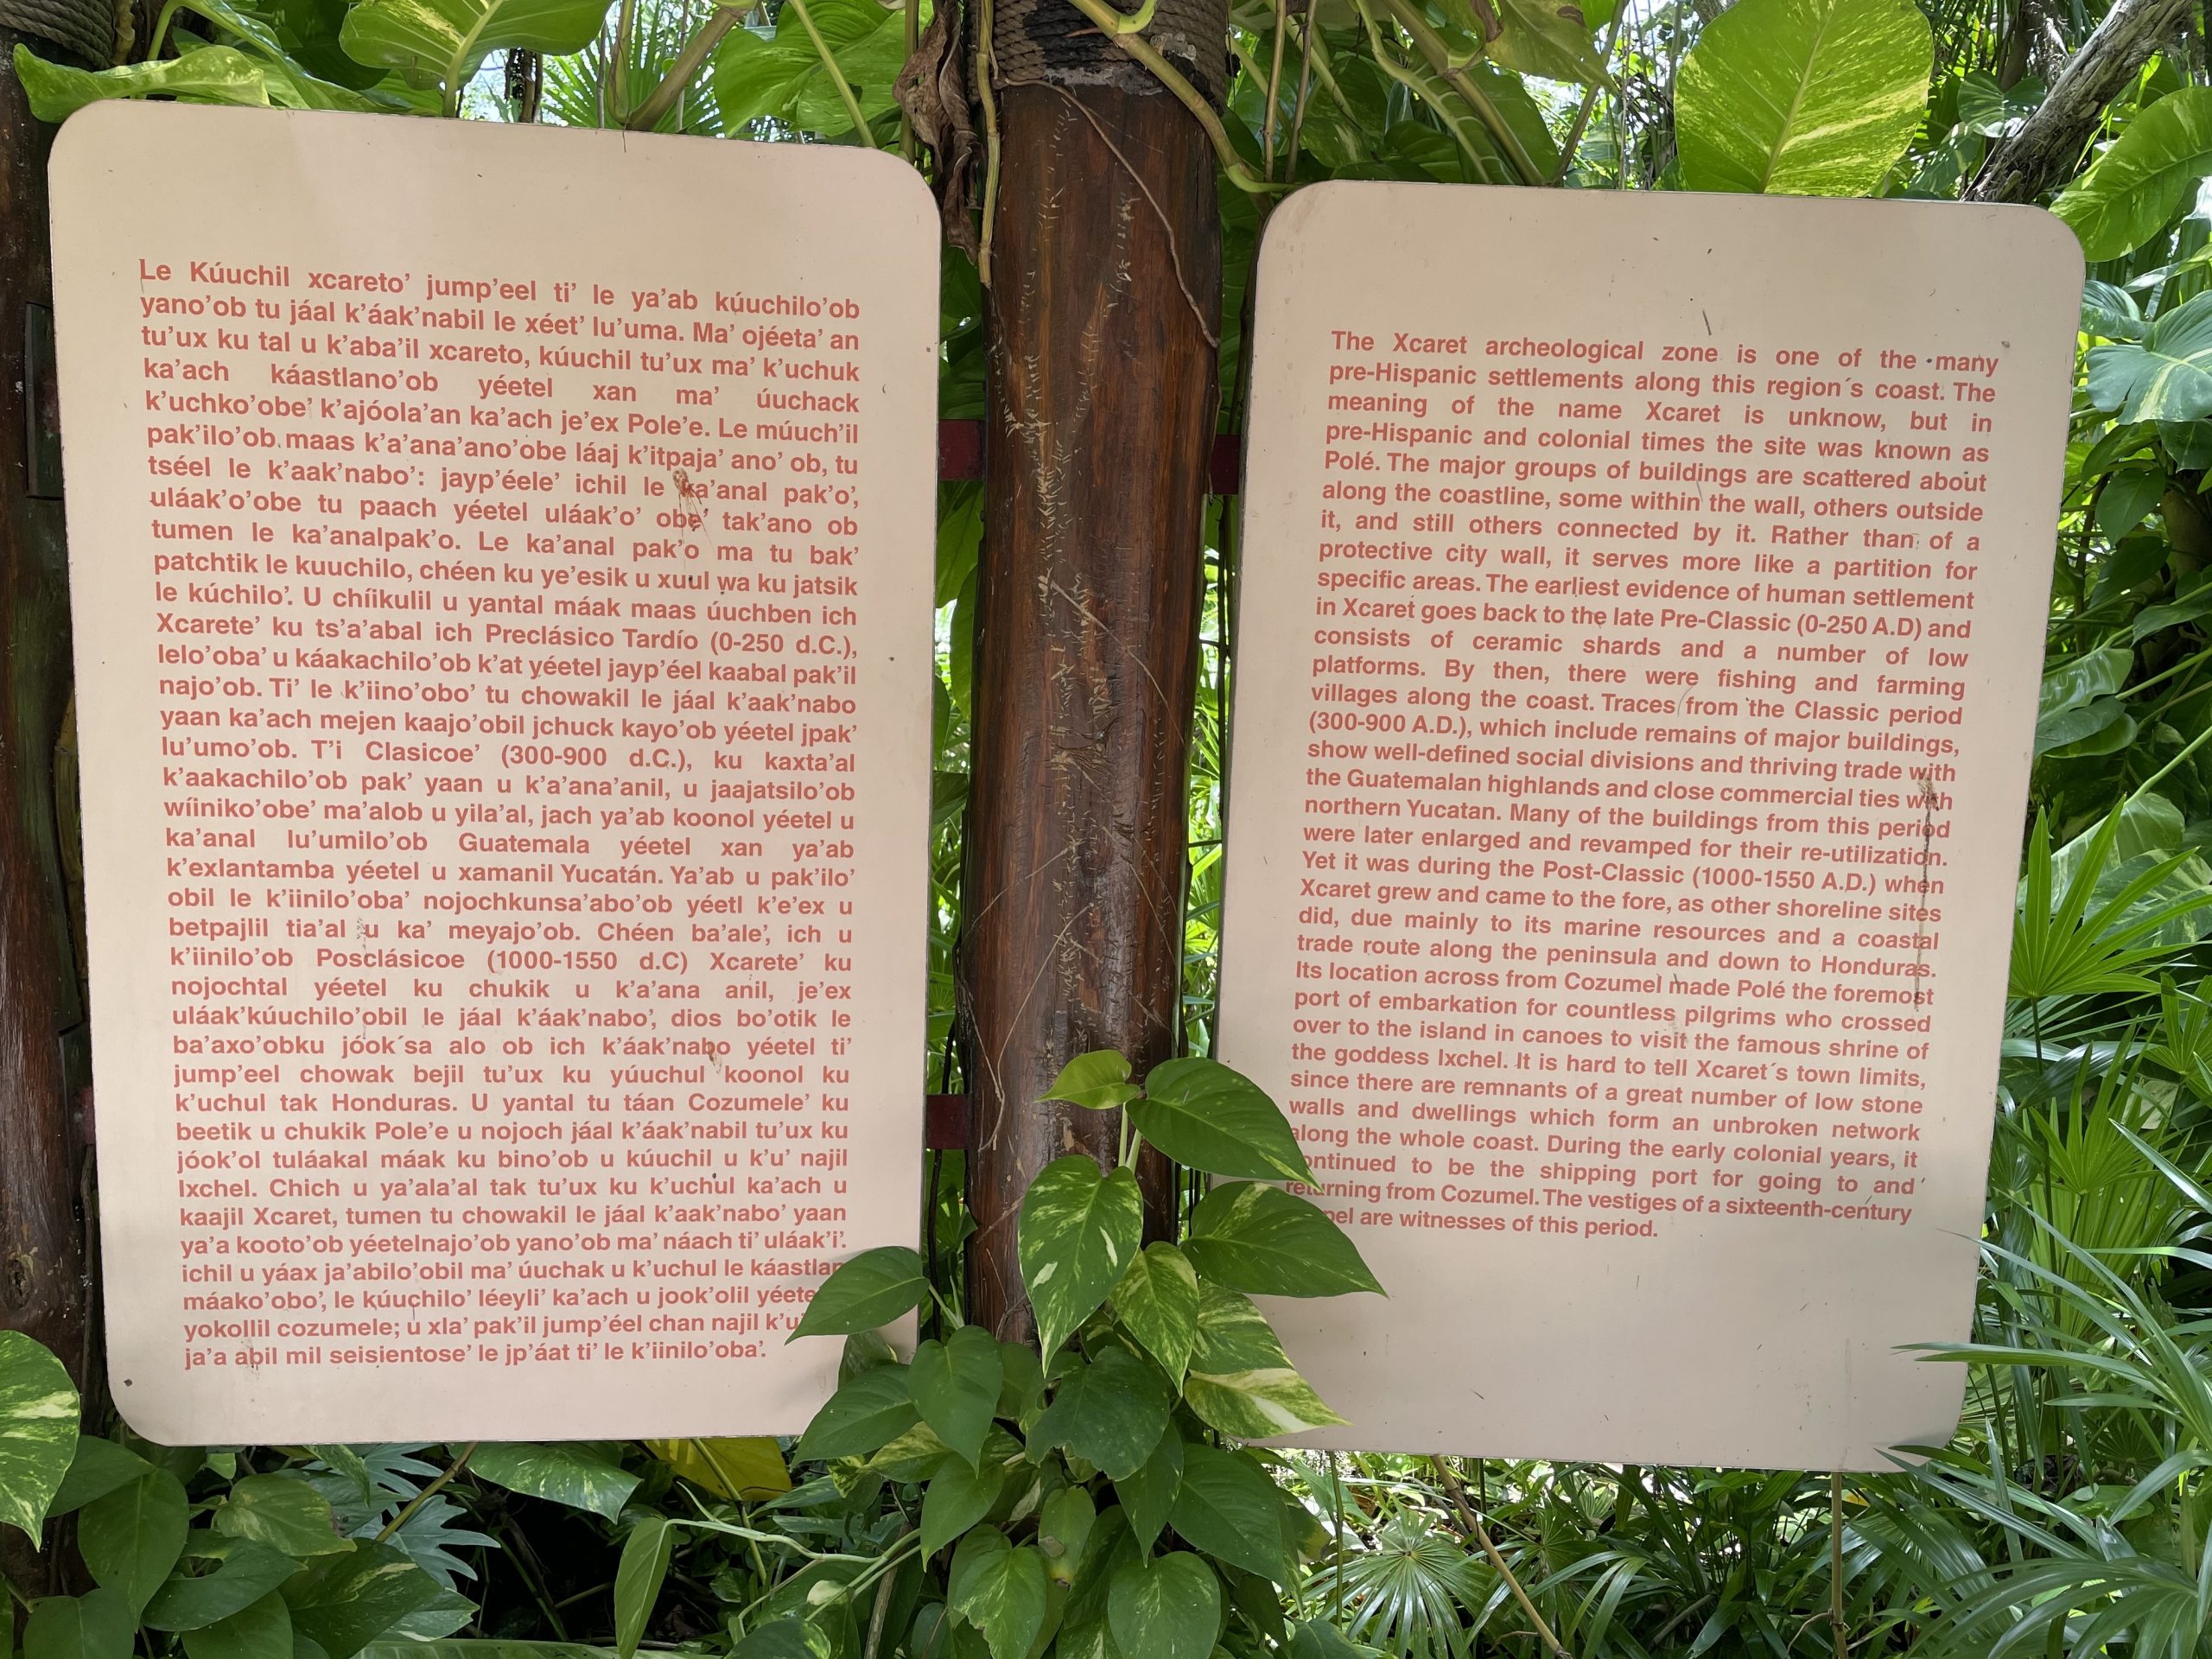 Le Kúuchil xcareto’ jump’eel ti’ le ya’ab kúuchilo’ob
yano’ob tu jáal k’áak’nabil le xéet’ lu’uma. Ma’ ojéeta’ an
tu’ux ku tal u k’aba’il xcareto, kúuchil tu’ux ma’ k’uchuk
ka’ach káastlano’ob yéetel xan ma’ úuchack
k’uchko’obe’ k’ajóola’an ka’ach je’ex Pole’e. Le múuch’il
pak’ilo’ob maas k’a’ana’ano’obe láaj k’itpaja’ ano’ ob, tu
tséel le k’aak’nabo’: jayp’éele’ ichil le ka’anal pak’o’,
uláak’o’obe tu paach yéetel uláak’o’ obe’ tak’ano ob
tumen le ka’analpak’o. Le ka’anal pak’o ma tu bak’
patchtik le kuuchilo, chéen ku ye’esik u xuul wa ku jatsik
le kúchilo’. U chíikulil u yantal máak maas úuchben ich
Xcarete’ ku ts’a’abal ich Preclásico Tardío (0-250 d.C.),
lelo’oba’ u káakachilo’ob k’at yéetel jayp’éel kaabal pak’il
najo’ob. Ti’ le k’iino’obo’ tu chowakil le jáal k’aak’nabo
yaan ka’ach mejen kaajo’obil jchuck kayo’ob yéetel jpak’
lu’umo’ob. T’i Clasicoe’ (300-900 d.C.), ku kaxta’al
k’aakachilo’ob pak’ yaan u k’a’ana’anil, u jaajatsilo’ob
wíiniko’obe’ ma’alob u yila’al, jach ya’ab koonol yéetel u
ka’anal lu’umilo’ob Guatemala yéetel xan ya’ab
k’exlantamba yéetel u xamanil Yucatán. Ya’ab u pak’ilo’
obil le k’iinilo’oba’ nojochkunsa’abo’ob yéetl k’e’ex u
betpajlil tia’al u ka’ meyajo’ob. Chéen ba’ale’, ich u
k’iinilo’ob Posclásicoe (1000-1550 d.C) Xcarete’ ku
nojochtal yéetel ku chukik u k’a’ana anil, je’ex
uláak’kúuchilo’obil le jáal k’áak’nabo’, dios bo’otik le
ba’axo’obku jóok´sa alo ob ich k’áak’nabo yéetel ti’
jump’eel chowak bejil tu’ux ku yúuchul koonol ku
k’uchul tak Honduras. U yantal tu táan Cozumele’ ku
beetik u chukik Pole’e u nojoch jáal k’áak’nabil tu’ux ku
jóok’ol tuláakal máak ku bino’ob u kúuchil u k’u’ najil
Ixchel. Chich u ya’ala’al tak tu’ux ku k’uchul ka’ach u
kaajil Xcaret, tumen tu chowakil le jáal k’aak’nabo’ yaan
ya’a kooto’ob yéetelnajo’ob yano’ob ma’ náach ti’ uláak’i’.
ichil u yáax ja’abilo’obil ma’ úuchak u k’uchul le káastlan
máako’obo’, le kúuchilo’ léeyli’ ka’ach u jook’olil
yokollil cozumele; u xla’ pak’il jump’éel chan najil
ja’a abil mil seisientose’ le jp’áat ti’ le k’iinilo’oba’.
The Xcaret archeological zone is one of the many
pre-Hispanic settlements along this region´s coast. The
meaning of the name Xcaret is unknow, but in
pre-Hispanic and colonial times the site was known as
Polé. The major groups of buildings are scattered about
along the coastline, some within the wall, others outside
it, and still others connected by it. Rather than of a
protective city wall, it serves more like a partition for
specific areas. The earliest evidence of human settlement
in Xcaret goes back to the late Pre-Classic (0-250 A.D) and
consists of ceramic shards and a number of low
platforms. By then, there were fishing and farming
villages along the coast. Traces from the Classic period
(300-900 A.D.), which include remains of major buildings,
show well-defined social divisions and thriving trade with
the Guatemalan highlands and close commercial ties with
northern Yucatan. Many of the buildings from this period
were later enlarged and revamped for their re-utilization.
Yet it was during the Post-Classic (1000-1550 A.D.) when
Xcaret grew and came to the fore, as other shoreline sites
did, due mainly to its marine resources and a coastal
trade route along the peninsula and down to Honduras.
Its location across from Cozumel made Polé the foremost
port of embarkation for countless pilgrims who crossed
over to the island in canoes to visit the famous shrine of
the goddess Ixchel. It is hard to tell Xcaret´s town limits,
since there are remnants of a great number of low stone
walls and dwellings which form an unbroken network
along the whole coast. During the early colonial years, it
continued to be the shipping port for going to and
returning from Cozumel. The vestiges of a sixteenth-century
are witnesses of this period.